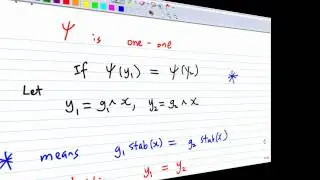 Ψ is one-one
If Ψ(y₁) = Ψ(y₂) *
Let
y₁ = g₁ ^ x, y₂ = g₂ ^ x
* means g₁ stab(x) = g₂ stab(x)
y₁ = y₂